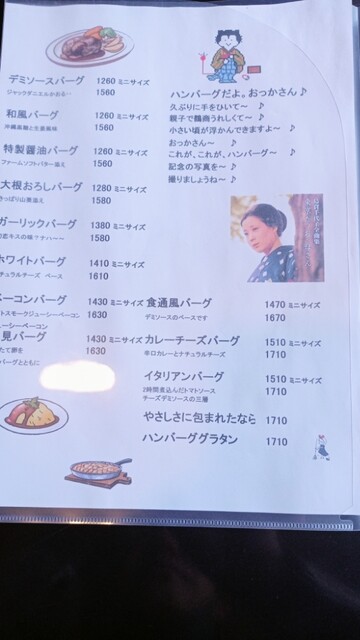 デミソースバーグ 1260 ミニサイズ
ジャックダニエルかおる‥ 1560
和風バーグ 1260 ミニサイズ
沖縄黒糖と生姜風味 1560
特製醤油バーグ 1260 ミニサイズ
ファームソフトバター添え 1560
大根おろしバーグ 1280 ミニサイズ
さっぱり山葵添え 1580
ガーリックバーグ 1380 ミニサイズ
初恋キスの味?ナハ〜〜 1580
ホワイトバーグ 1410 ミニサイズ
チュラルチーズ ベース 1610
ベーコンバーグ 1430 ミニサイズ
トスモークジューシーベーコン 1630
ューシーベーコン
見バーグ 1430 ミニサイズ
たて卵を 1630
バーグとともに
ハンバーグだよ。おっかさん♪
久ぶりに手をひいて〜 ♪
親子で麵商うれしくて〜 ♪
小さい頃が浮かんできますよ〜 ♪
おっかさん〜 ♪
これが、これが、ハンバーグ〜 ♪
記念の写真を〜 ♪
撮りましょうね〜 ♪
食通風バーグ 1470 ミニサイズ
デミソースのベースです 1670
カレーチーズバーグ 1510 ミニサイズ
辛口カレーとナチュラルチーズ 1710
イタリアンバーグ 1510 ミニサイズ
2時間煮込んだトマトソース 1710
チーズデミソースの三層
やさしさに包まれたなら 1710
ハンバーググラタン 1710